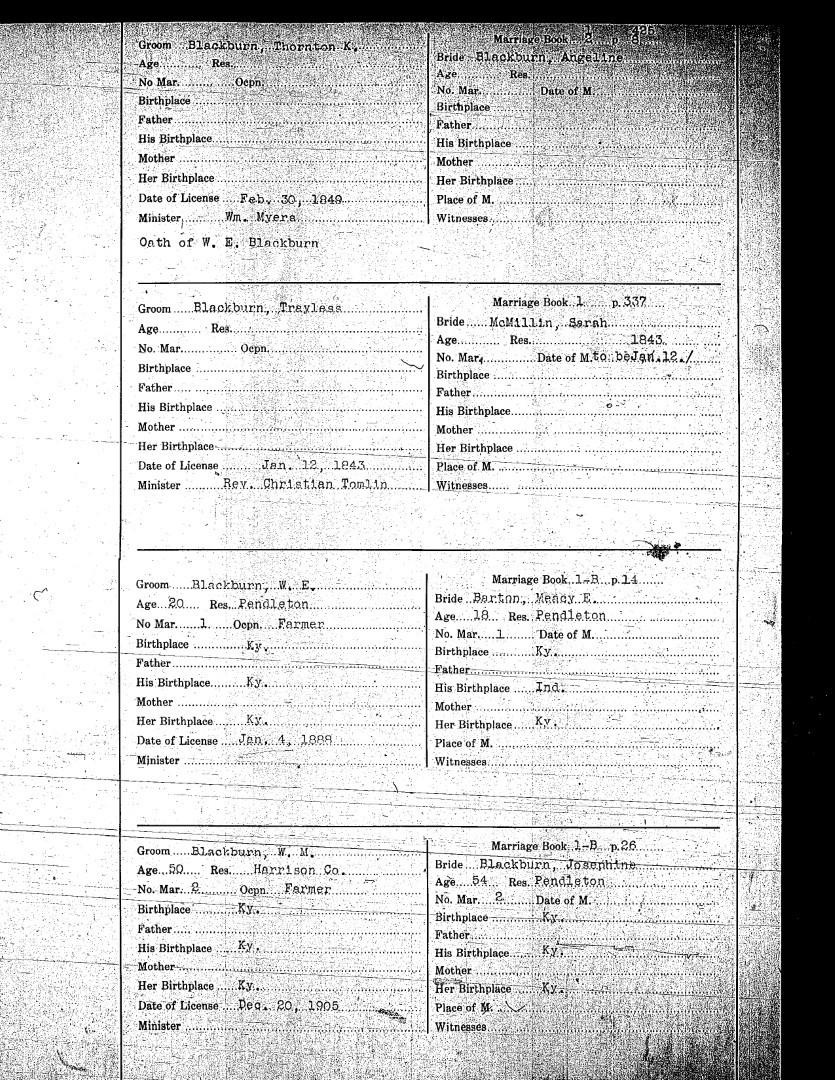 Groom Blackburn, Thornton K.
Age Res.
No Mar. Ocpn.
Birthplace
Father
His Birthplace
Mother
Her Birthplace
Date of License Feb. 30, 1849
Minister Wm. Myers
Oath of W. E. Blackburn
Marriage Book 2 p.
Bride Blackburn, Angeline
Age Res.
No. Mar. Date of M.
Birthplace
Father
His Birthplace
Mother
Her Birthplace
Place of M.
Witnesses
Groom Blackburn, Trayless
Age Res.
No. Mar. Ocpn.
Birthplace
Father
His Birthplace
Mother
Her Birthplace
Date of License Jan. 12, 1843
Minister Rev. Christian Tomlin
Marriage Book 1 p. 337
Bride McMillin, Sarah
Age Res. 1843
No. Mar. Date of M. to be Jan. 12. /
Birthplace
Father
His Birthplace
Mother
Her Birthplace
Place of M.
Witnesses
Groom Blackburn, W. E.
Age 20 Res. Pendleton
No Mar. 1 Ocpn. Farmer
Birthplace Ky.
Father
His Birthplace Ky.
Mother
Her Birthplace Ky.
Date of License Jan. 4, 1888
Minister
Marriage Book 1-B p. 14
Bride Barton, Meacy E.
Age 18 Res. Pendleton
No. Mar. 1 Date of M.
Birthplace Ky.
Father
His Birthplace Ind.
Mother
Her Birthplace Ky.
Place of M.
Witnesses
Groom Blackburn, W. M.
Age 50 Res. Harrison Co.
No. Mar. 2 Ocpn Farmer
Birthplace Ky.
Father
His Birthplace Ky.
Mother
Her Birthplace Ky.
Date of License Dec. 20, 1905
Minister
Marriage Book 1-B p. 26
Bride Blackburn, Josephine
Age 54 Res. Pendleton
No. Mar. 2 Date of M.
Birthplace Ky.
Father
His Birthplace Ky.
Mother
Her Birthplace Ky.
Place of M.
Witnesses